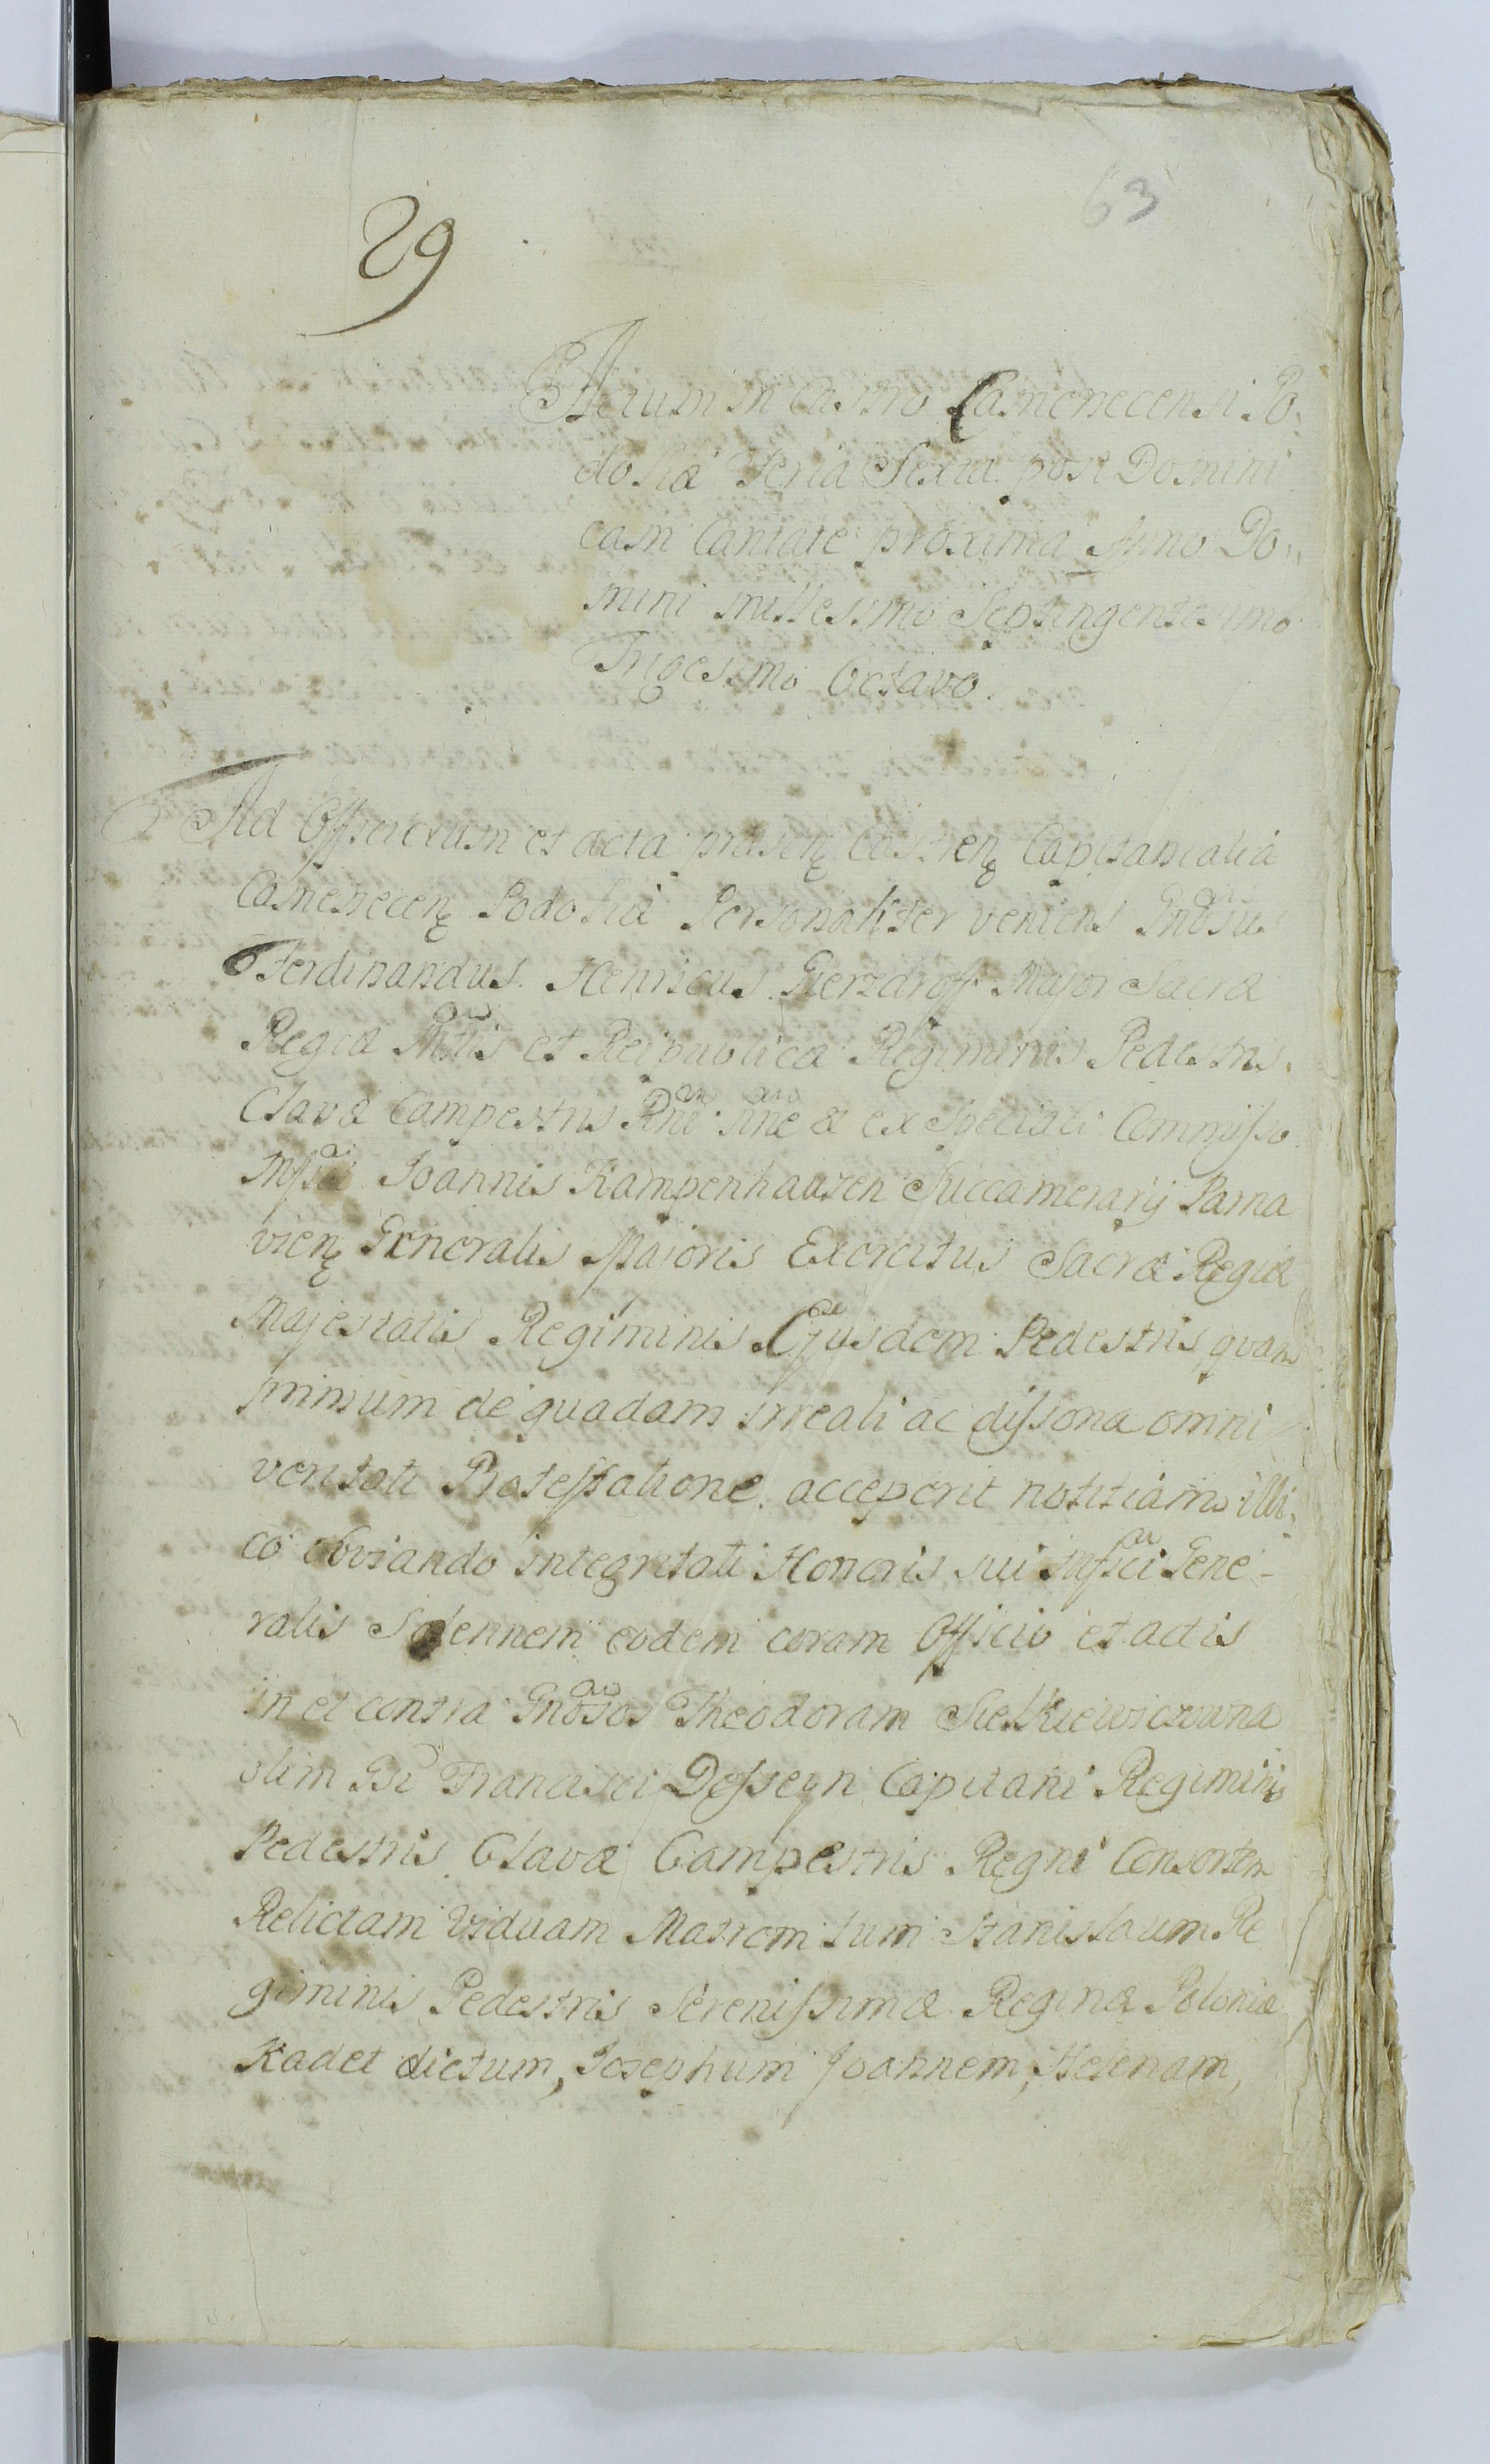 63
29
Actum in Castro Camenecensi Po
doliæ Feria Sexta post Domini
cam Cantate proxima Anno Do
mini millesimo Septingentesimo
Trigesimo Octavo.
Ad Officium et acta præsen Castren Capitanealia
Camenecen Podoliæ Personaliter veniens Gnosus
Ferdinandus Henricus Gierzdroff Major Sacræ
Regiæ Mttis et Reipublicæ Regiminis Pedestris
Clavæ Campestris & ex Speciali Commisso
Mfci Joannis Kampenhauzen Succamerarij Parna
vien Generalis Majoris Exercitus Sacræ Regiæ
Majestatis Regiminis Ejusdem Pedestris quam
primum de quadam irreali ac dissona omni
veritati Protestatione acceperit notitiam illi
co obviando integritati Honoris sui Mfci Gene-
ralis Solennem eodem coram Officio et actis
in et contra Gnosos Theodoram Sielkiewiczowna
olim Gsi Francisci Desseyn Capitani Regiminis
Pedestris Clavæ Campestris Regni Consortem
Relictam Viduam Matrem tum Stanislaum Re
giminis Pedestris Serenissimæ Reginæ Poloniæ
Kadet dictum, Josephum Joannem, Helenam,